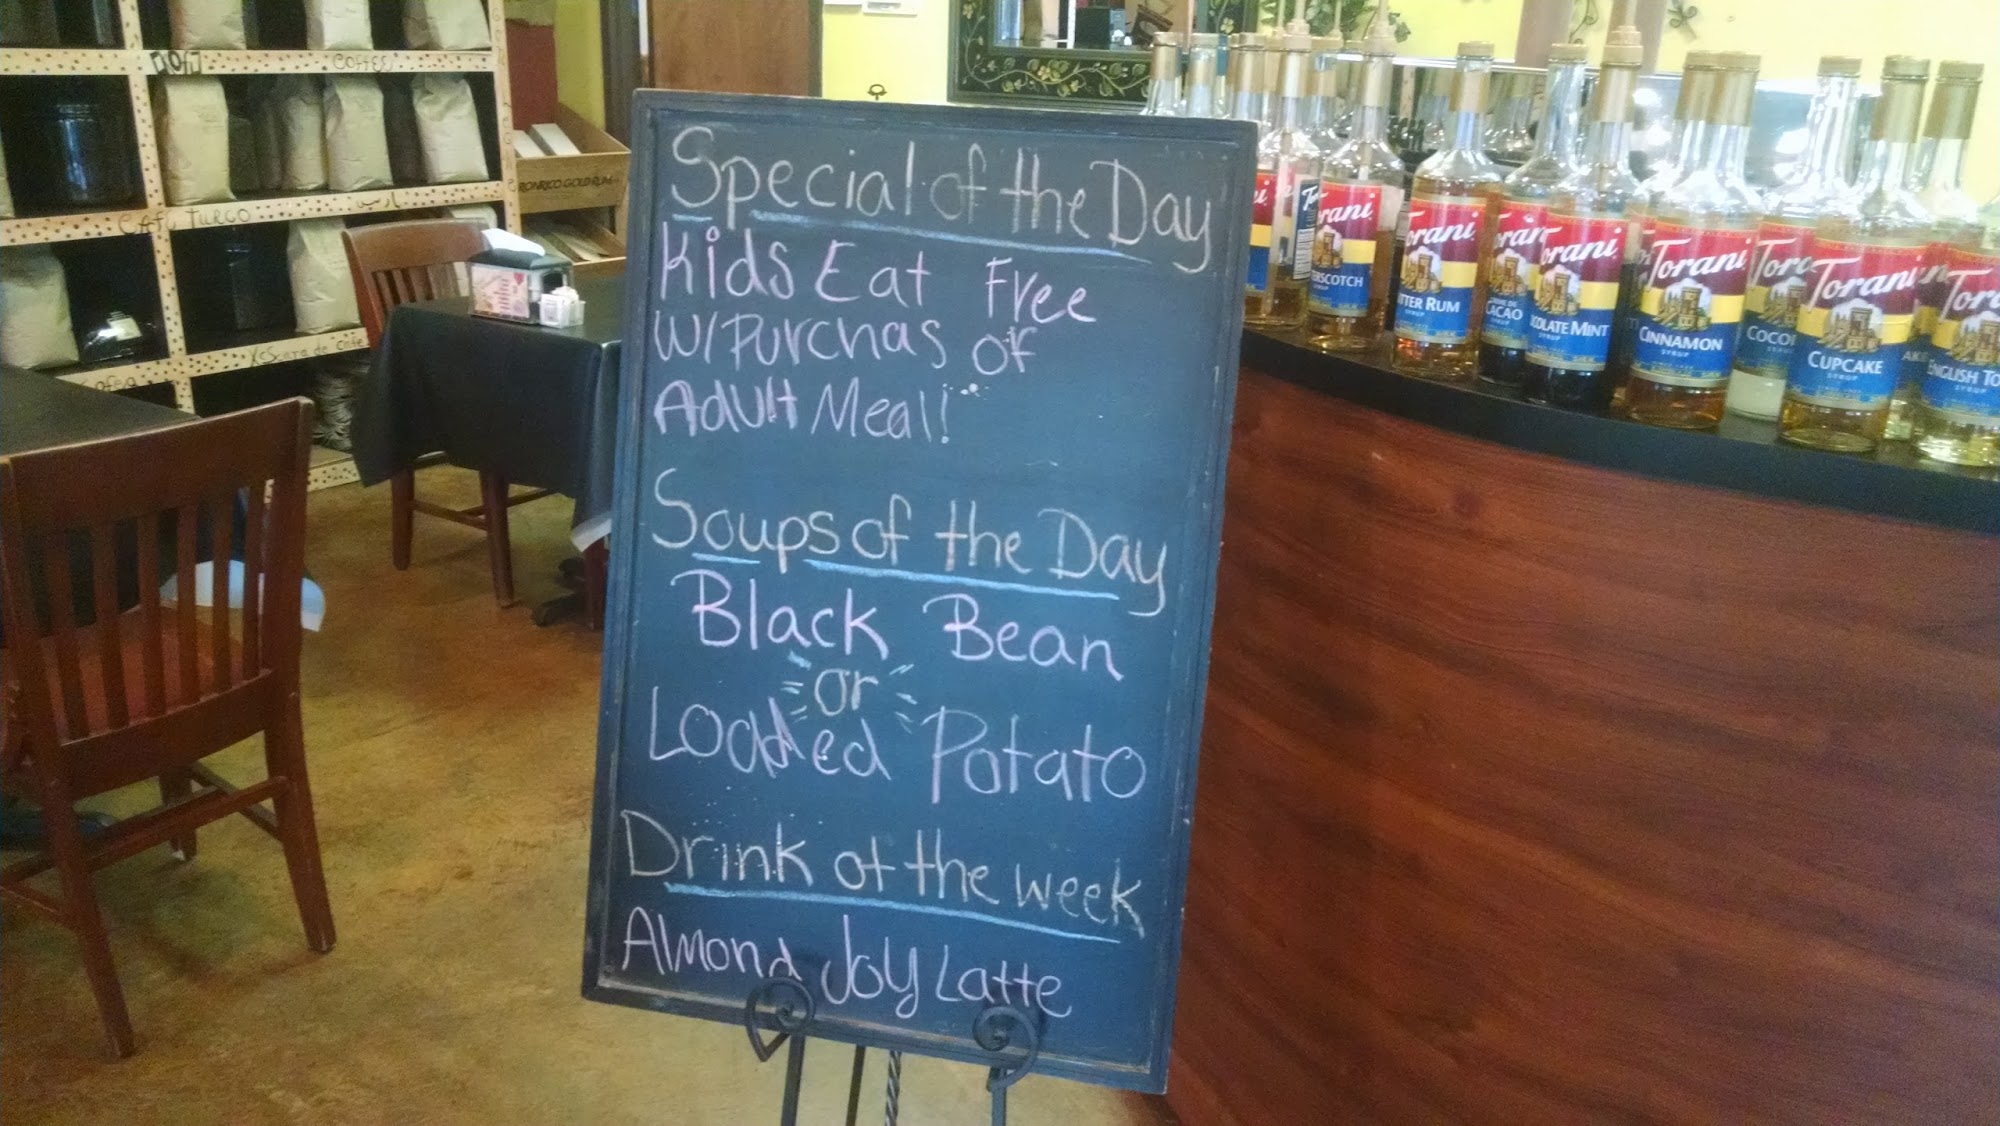 Special of the Day
Kids Eat Free
W/Purchas of
Adult Meal!
Soups of the Day
Black Bean
or
Loaded Potato
Drink of the week
Almond Joy Latte
COFFEE
TURCO
RONRICO GOLD RUM
Torani
Torani
ERSCOTCH
SYRUP
Torani
TTER RUM
SYRUP
Torani
CACAO
SYRUP
Torani
COLATE MINT
SYRUP
Torani
CINNAMON
SYRUP
Torani
COCO
Torani
CUPCAKE
SYRUP
Torani
ENGLISH TO
SYRUP